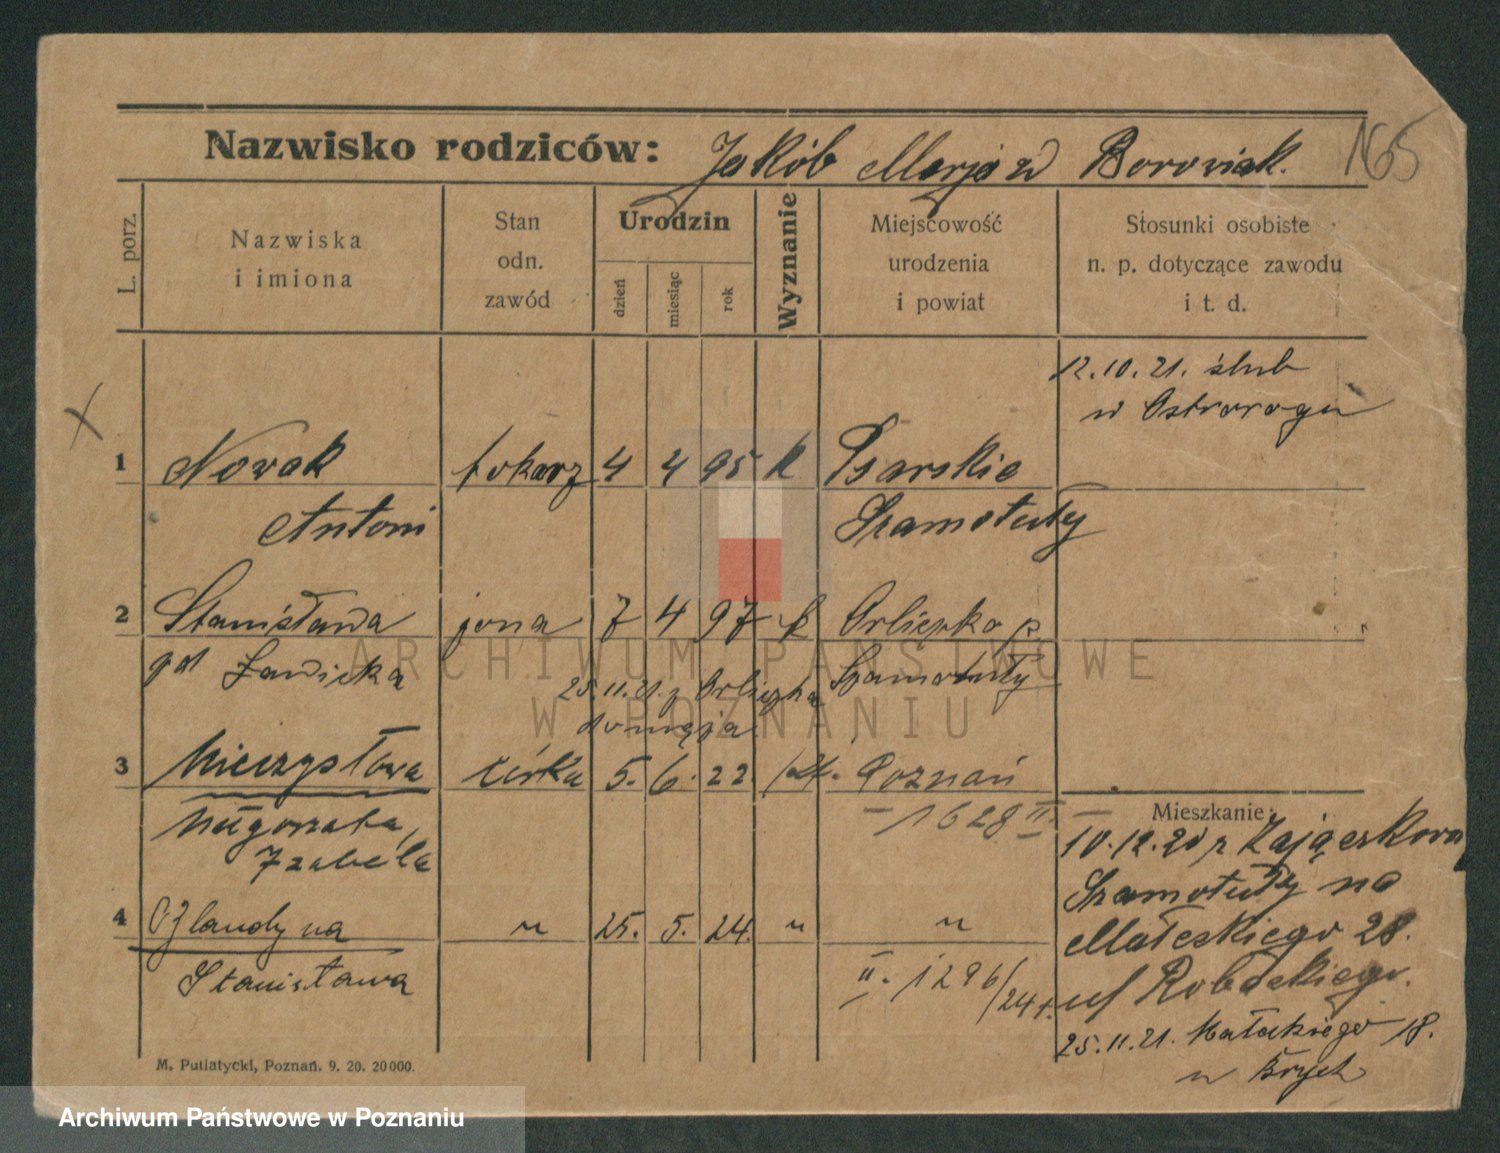 Nazwisko rodziców: Jakób Marja z d Borowiak. 165
L. porz.
Nazwiska
i imiona
Stan
odn.
zawód
Urodzin
dzień
miesiąc
rok
Wyznanie
Miejscowość
urodzenia
i powiat
Stosunki osobiste
n. p. dotyczące zawodu
i t. d.
12.10.21. ślub
w Ostrorogu
1 Nowak tokarz 4 4 95 k Psarskie
Antoni Szamotuły
2 Stanisława żona 7 4 97 k Orliczko p.
Ławicka Szamotuły
25.11.21. z Orliczka
do męża
3 Mieczysława córka 5. 6. 22. Poznań
Małgorzata, 1628 II
Izabela
4 stanisława 25. 5. 24. " "
II. 1296/24
Mieszkanie:
10.12.20 z Zajączkowa
Szamotuły na
Małeckiego 28.
uf Robackiego.
25.11.21. Małeckiego 18.
M. Putiatycki, Poznań. 9. 20. 20000.
ARCHIWUM PAŃSTWOWE
W POZNANIU
Archiwum Państwowe w Poznaniu